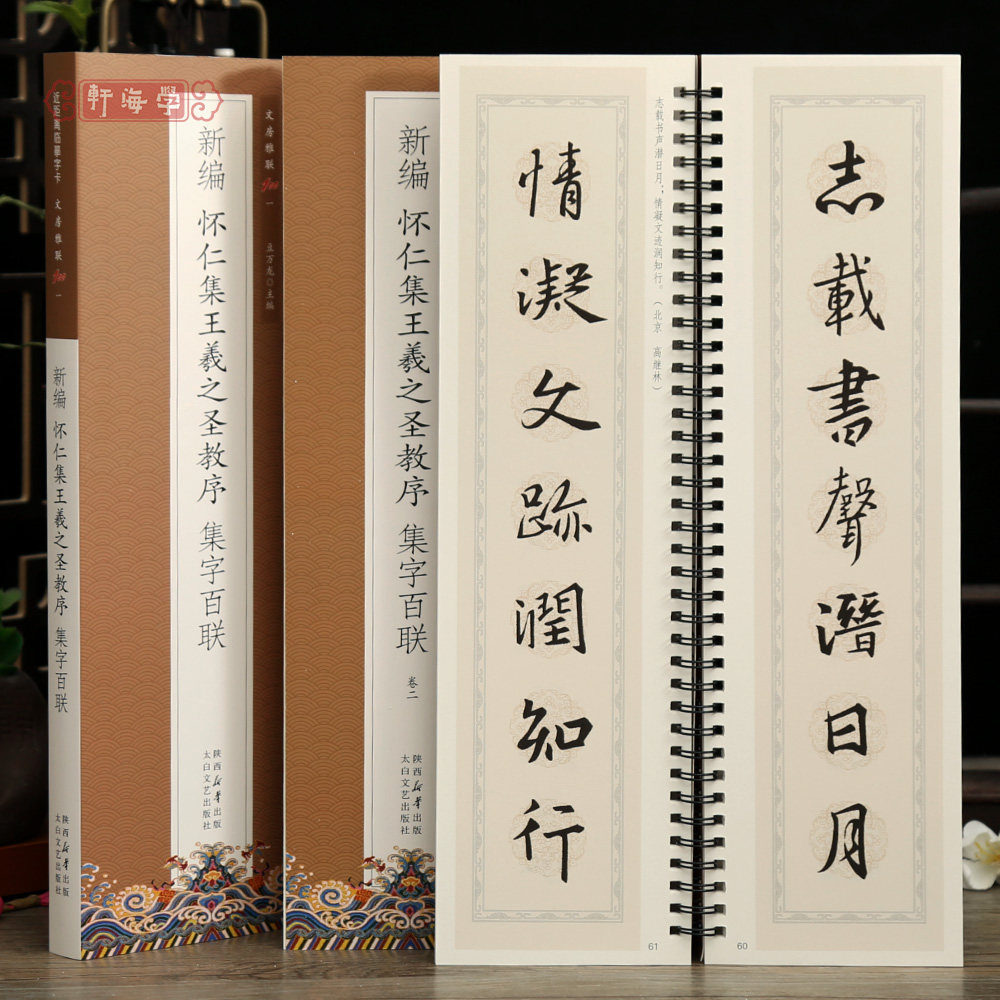 學海軒
近距离临摹字卡 文房雅联 一
新编 怀仁集王羲之圣教序 集字百联
陕西新华出版
太白文艺出版社
文房雅联 一
主编
新编 怀仁集王羲之圣教序 集字百联
陕西新华出版
太白文艺出版社
新编 怀仁集王羲之圣教序 集字百联 卷二
陕西新华出版
太白文艺出版社
志載書聲潛日月
60
志载书声潜日月；情凝文迹润知行。（北京 高继林）
情凝文跡潤知行
61